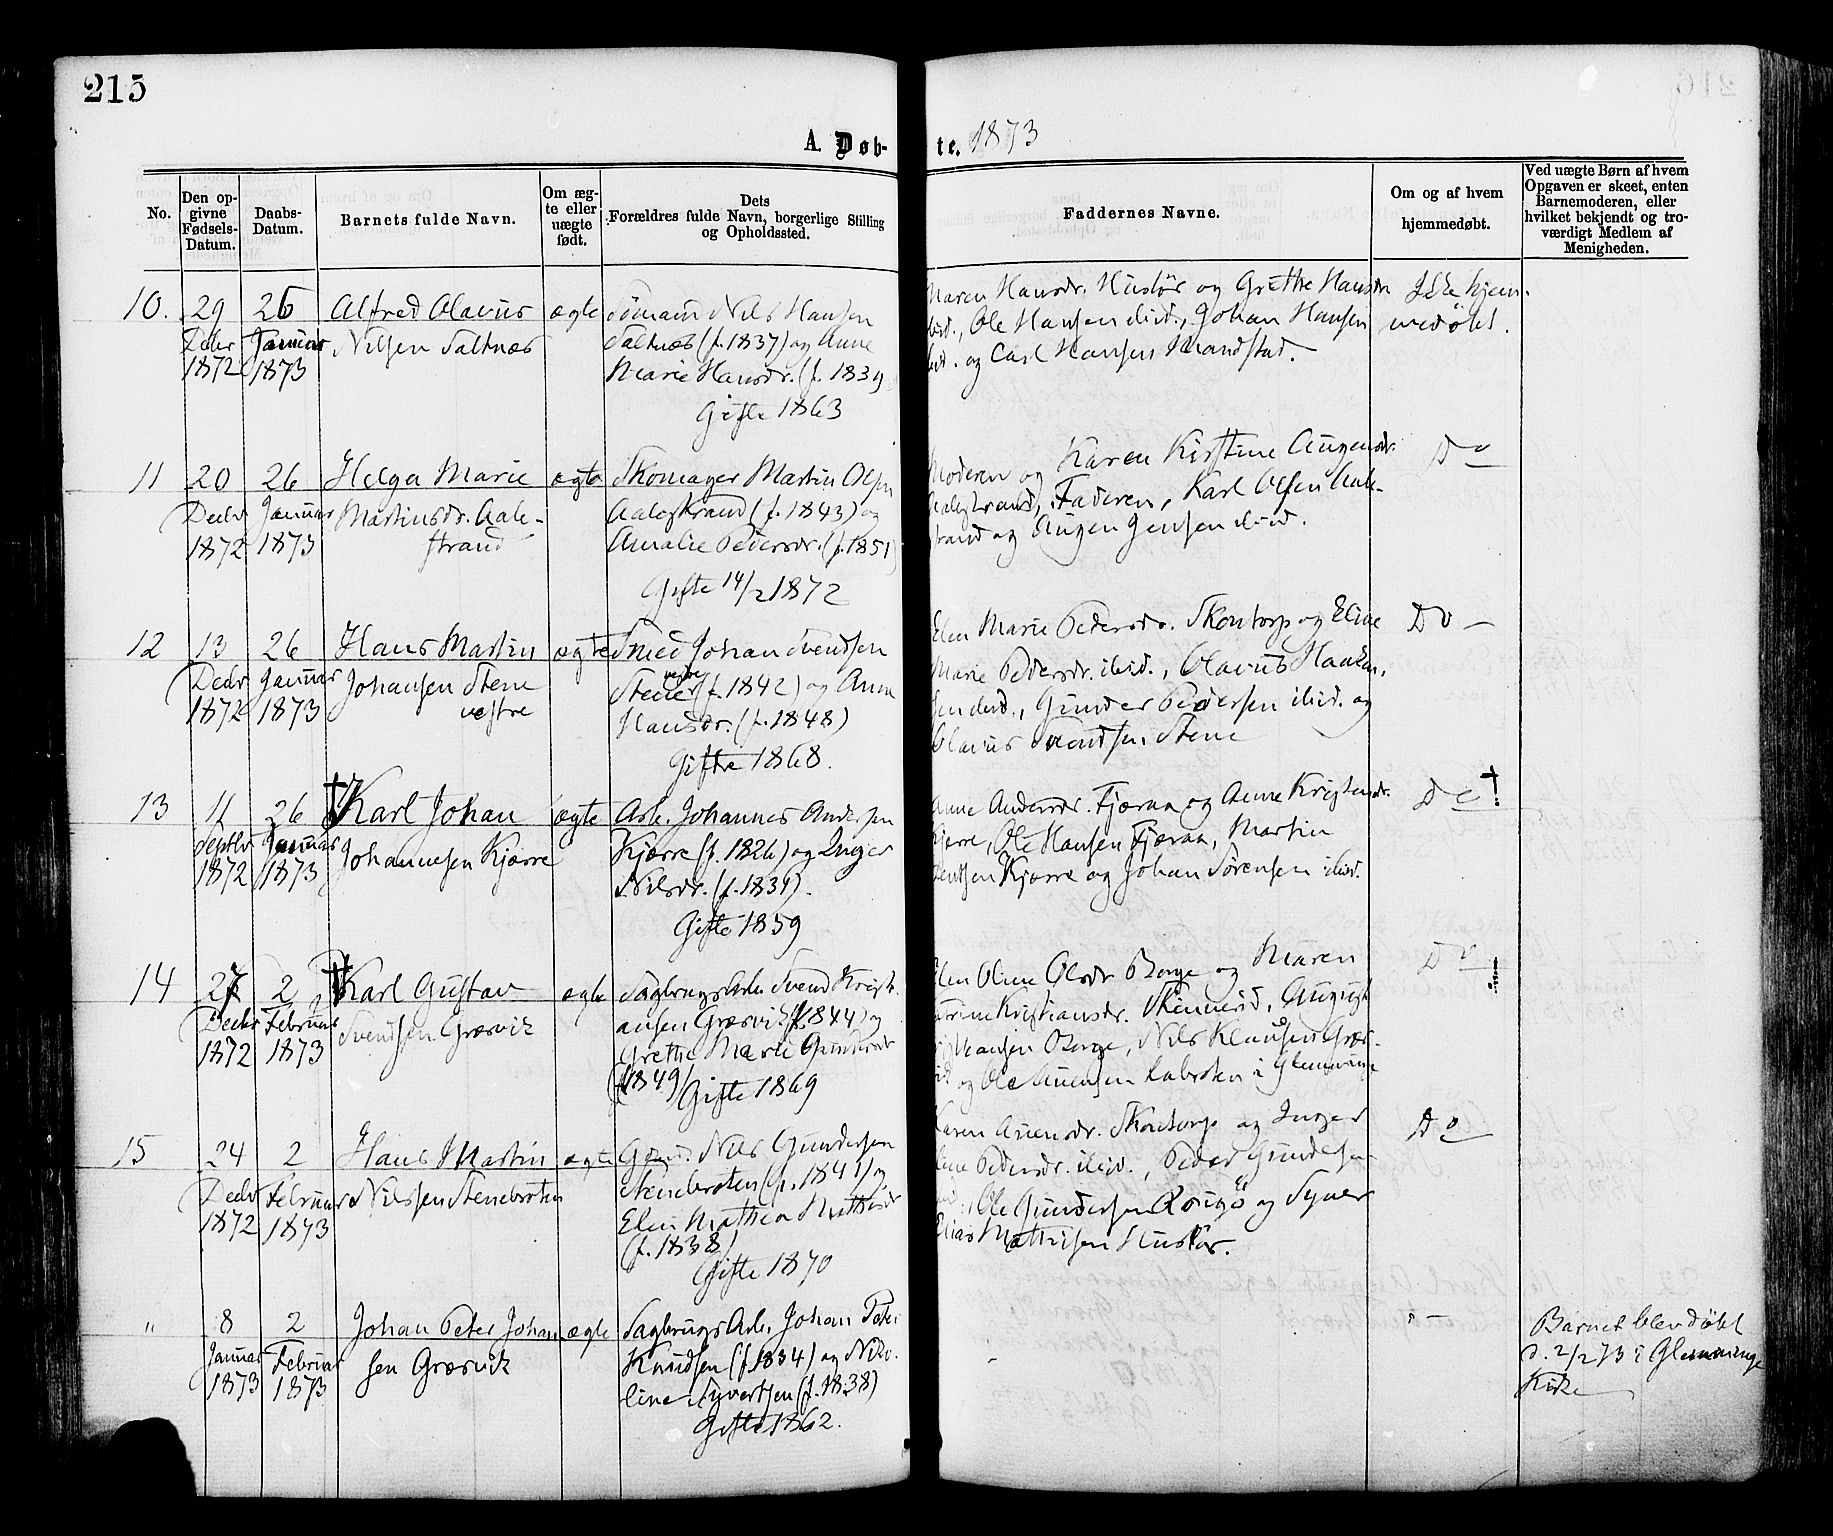 215
A. Døb-
te. 1873
No.
Den op-
givne
Fødsels-
Datum.
Daabs-
Datum.
Barnets fulde Navn.
Om æg-
te eller
uægte
født.
Dets
Forældres fulde Navn, borgerlige Stilling
og Opholdssted.
Faddernes Navne.
Om og af hvem
hjemmedøbt.
Ved uægte Børn af hvem
Opgaven er skeet, enten
Barnemoderen, eller
hvilket bekjendt og tro-
værdigt Medlem af
Menigheden.
10.
29
Decbr
1872
26
Januar
1873
Alfred Olavus
Nilsen Saltnæs
ægte
Sømand Nils Hansen
Saltnæs (f. 1837) og Anne
Marie Hansdr. (f. 1839
Gifte 1863
Maren Hansdr. Huslør og Grethe Hansdr
ibid., Ole Hansen ibid., Johan Hansen
ibid. og Carl Hansen
Ikke hjem-
medøbt.
11
20
Decbr
1872
26
Januar
1873
Helga Marie
Martinsdr. Aale-
strand
ægte
Skomager Martin Olsen
Aalestrand (f. 1843) og
Amalie Pedersdr. (f. 1851)
Gifte 14/2 1872
Moderen og Karen Kirstine Augensdr.
Aalestrand, Faderen, Karl Olsen Aale-
strand og Augen Jensen ibid.
Do
12
13
Decbr
1872
26
Januar
1873
Hans Martin
Johansen Stene
vestre
ægte
Smed Johan Svendsen
Stene vestre (f. 1842) og Anne
Hansdr. (f. 1848)
Gifte 1868.
Elen Marie Pedersdr. Skontorp og Eline
Marie Pedersdr. ibid., Olavus Haaken-
sen ibid., Gunder Pedersen ibid. og
Olavus Svendsen Stene
Do –
13
11
Septbr
1872
26
Januar
1873
† Karl Johan
Johannesen Kjærre
ægte
Arb. Johannes Andersen
Kjærre (f. 1826) og Inger
Nilsdr. (f. 1839).
Gifte 1859
Anne Andersdr. Fjæraa og Anne Kristensdr.
Kjerre, Ole Hansen Fjæraa, Martin
Bentsen Kjærre og Johan Sørensen ibid.
Do †
14
27
Decbr
1872
2
Februar
1873
† Karl Gustav
Svendsen Græsvik
ægte
Sagbrugsarb. Svend Kristi-
ansen Græsvik (f. 1844) og
Grethe Marie Gundersdr
(f. 1849) Gifte 1869
Elen Oline Olsdr Borge og Maren
Kristiansdr. August
Borge, Nils Klausen Græs-
vik og Ole i Glemminge
Do
15
24
Decbr
1872
2
Februar
1873
Hans Martin
Nilssen Stenebrøten
ægte
Nils Gundersen
Stenebrøten (f. 1841) og
Elen Mathea
(f. 1838)
Gifte 1870
Karen Skontorp og Inger
Eline Pedersdr. ibid., Peder Gundersen
ibid., Ole Gundersen og Syver
Elias Mathisen Huslør.
Do
"
8
Januar
1873
2
Februar
1873
Johan Peter Johan-
sen Græsvik
ægte
Sagbrugs Arb. Johan Peter
Knudsen (f. 1834) og Niko-
line Syvertsen (f. 1838)
Gifte 1862.
Barnet blev døbt
d. 2/2 73 i Glemminge
Kirke